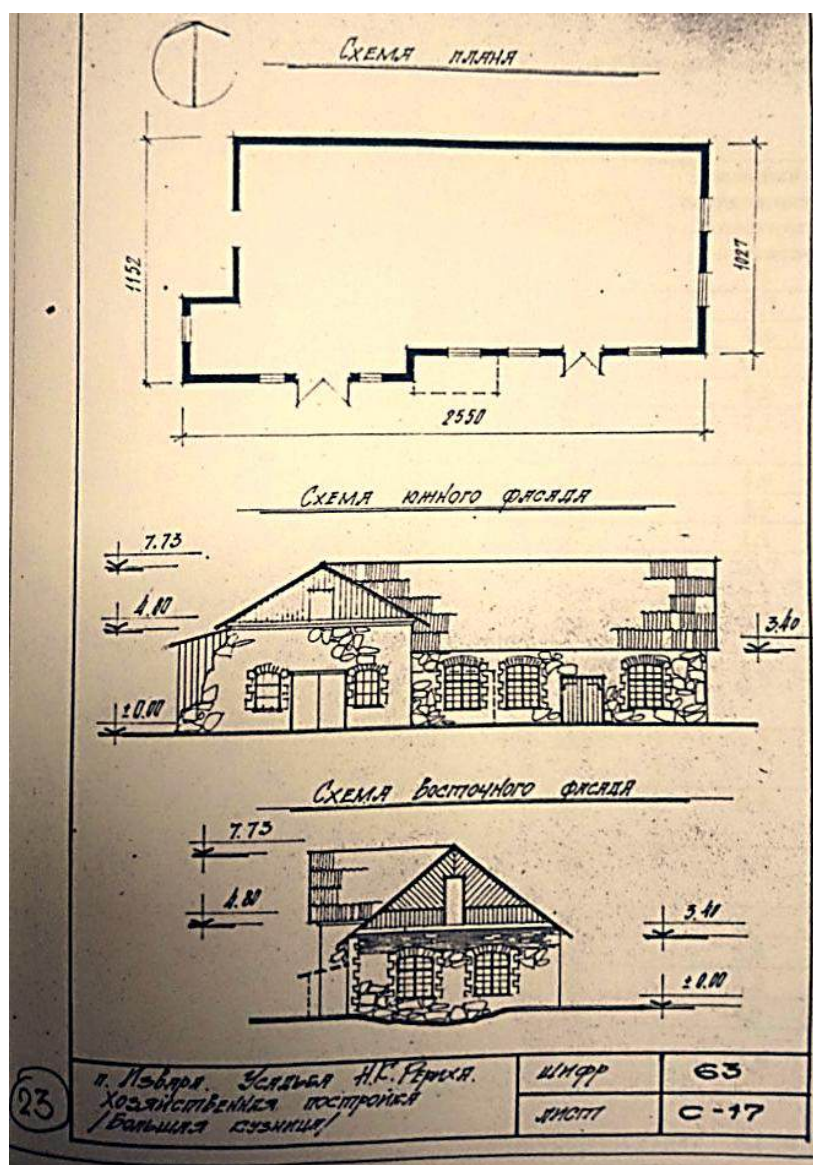 Схема плана
1152
1027
2550
Схема южного фасада
7.73
4.80
3.40
±0.00
Схема восточного фасада
7.73
4.80
3.40
±0.00
п. Извара. Усадьба Н.К. Рериха.
Хозяйственная постройка
/Большая кузница/
шифр 63
лист С-17
23